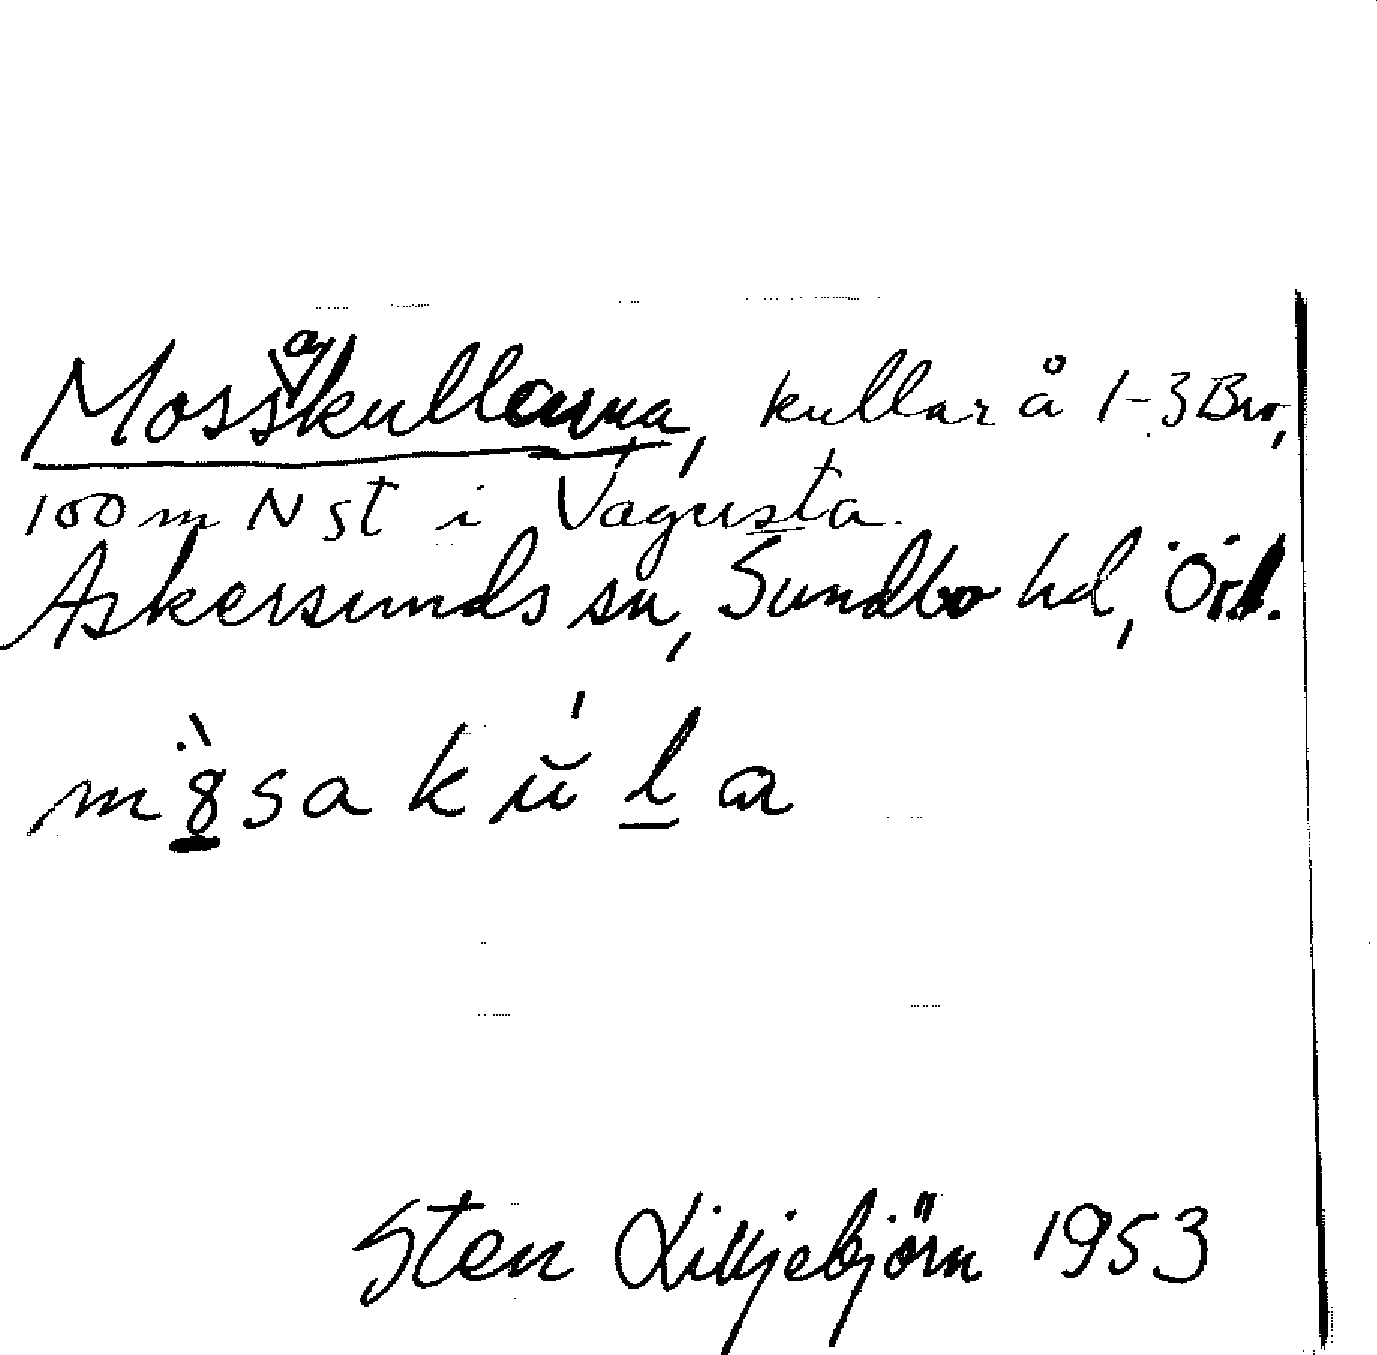 Mossakullarna, kullar å 1-3 Bro,
100 m N st i Vagusta.
Askersunds sn, Sundbo hd, Örl.
m s a k ŭ l a
Sten Liljebjörn 1953